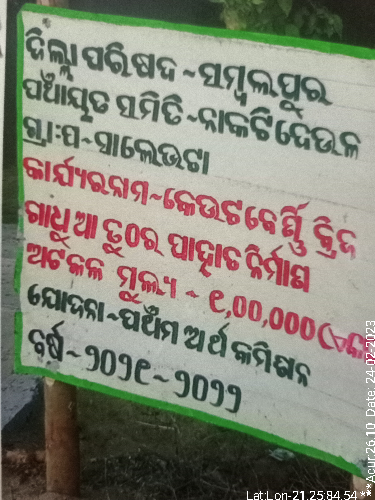 ଜିଲ୍ଲା ପରିଷଦ ~ ସମ୍ବଲପୁର
ପଞ୍ଚାୟୃତ ସମିତି ~ ନାକଟିଦେଉଳ
ଗ୍ରା:ପ ~ ସାଲେଭଟା
କାର୍ଯ୍ୟରନାମ ~ କେଉଟବେର୍ଣ୍ଣି ବ୍ରିଜ
ଗାଧୁଆ ତୁଠର ପାହାଚ ନିର୍ମାଣ
ଅଟକଳ ମୁଲ୍ୟ ~ ୧,00,000
ଯୋଜନା ~ ପଞ୍ଚମ ଅର୍ଥ କମିଶନ
ବର୍ଷ ~ ୨୦୨୧ ~ ୨୦୨୨
Lat:Lon-21.2584,54
***Acur:26.10 Date: 24-02-2023